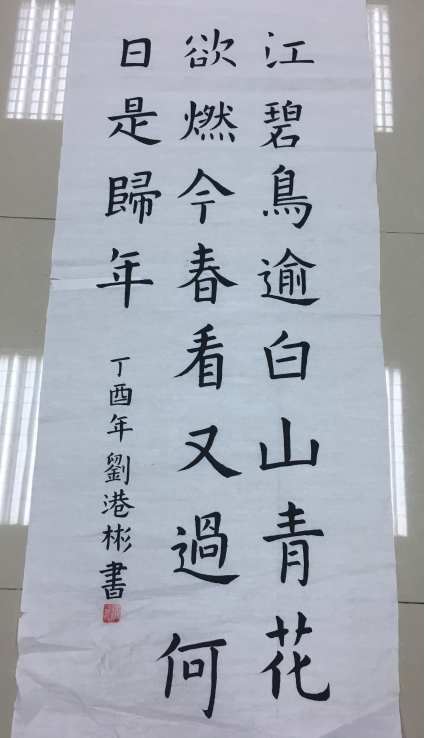 江碧鳥逾白山青花
欲燃今春看又過何
日是歸年
丁酉年劉港彬書